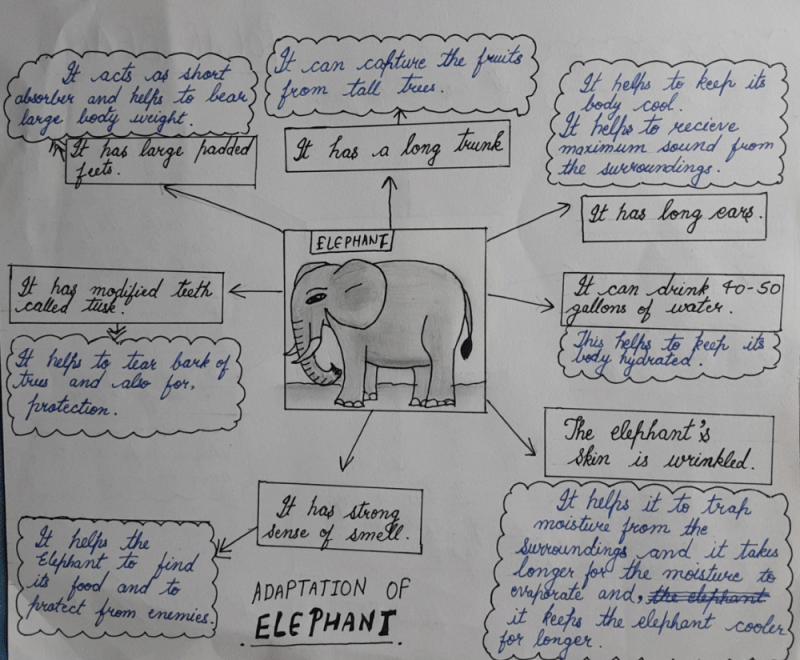 It acts as short
absorber and helps to bear
large body weight.
It has large padded
feets.
It can capture the fruits
from tall trees.
It has a long trunk
It helps to keep its
body cool.
It helps to recieve
maximum sound from
the surroundings.
It has long ears.
ELEPHANT
It has modified teeth
called tusk.
It helps to tear bark of
trees and also for,
protection.
It can drink 40-50
gallons of water.
This helps to keep its
body hydrated.
The elephant's
skin is wrinkled.
It helps it to trap
moisture from the
surroundings and it takes
longer for the moisture to
evaporate and, the elephant
it keeps the elephant cooler
for longer.
It has strong
sense of smell.
It helps the
Elephant to find
its food and to
protect from enemies.
ADAPTATION OF
ELEPHANT.